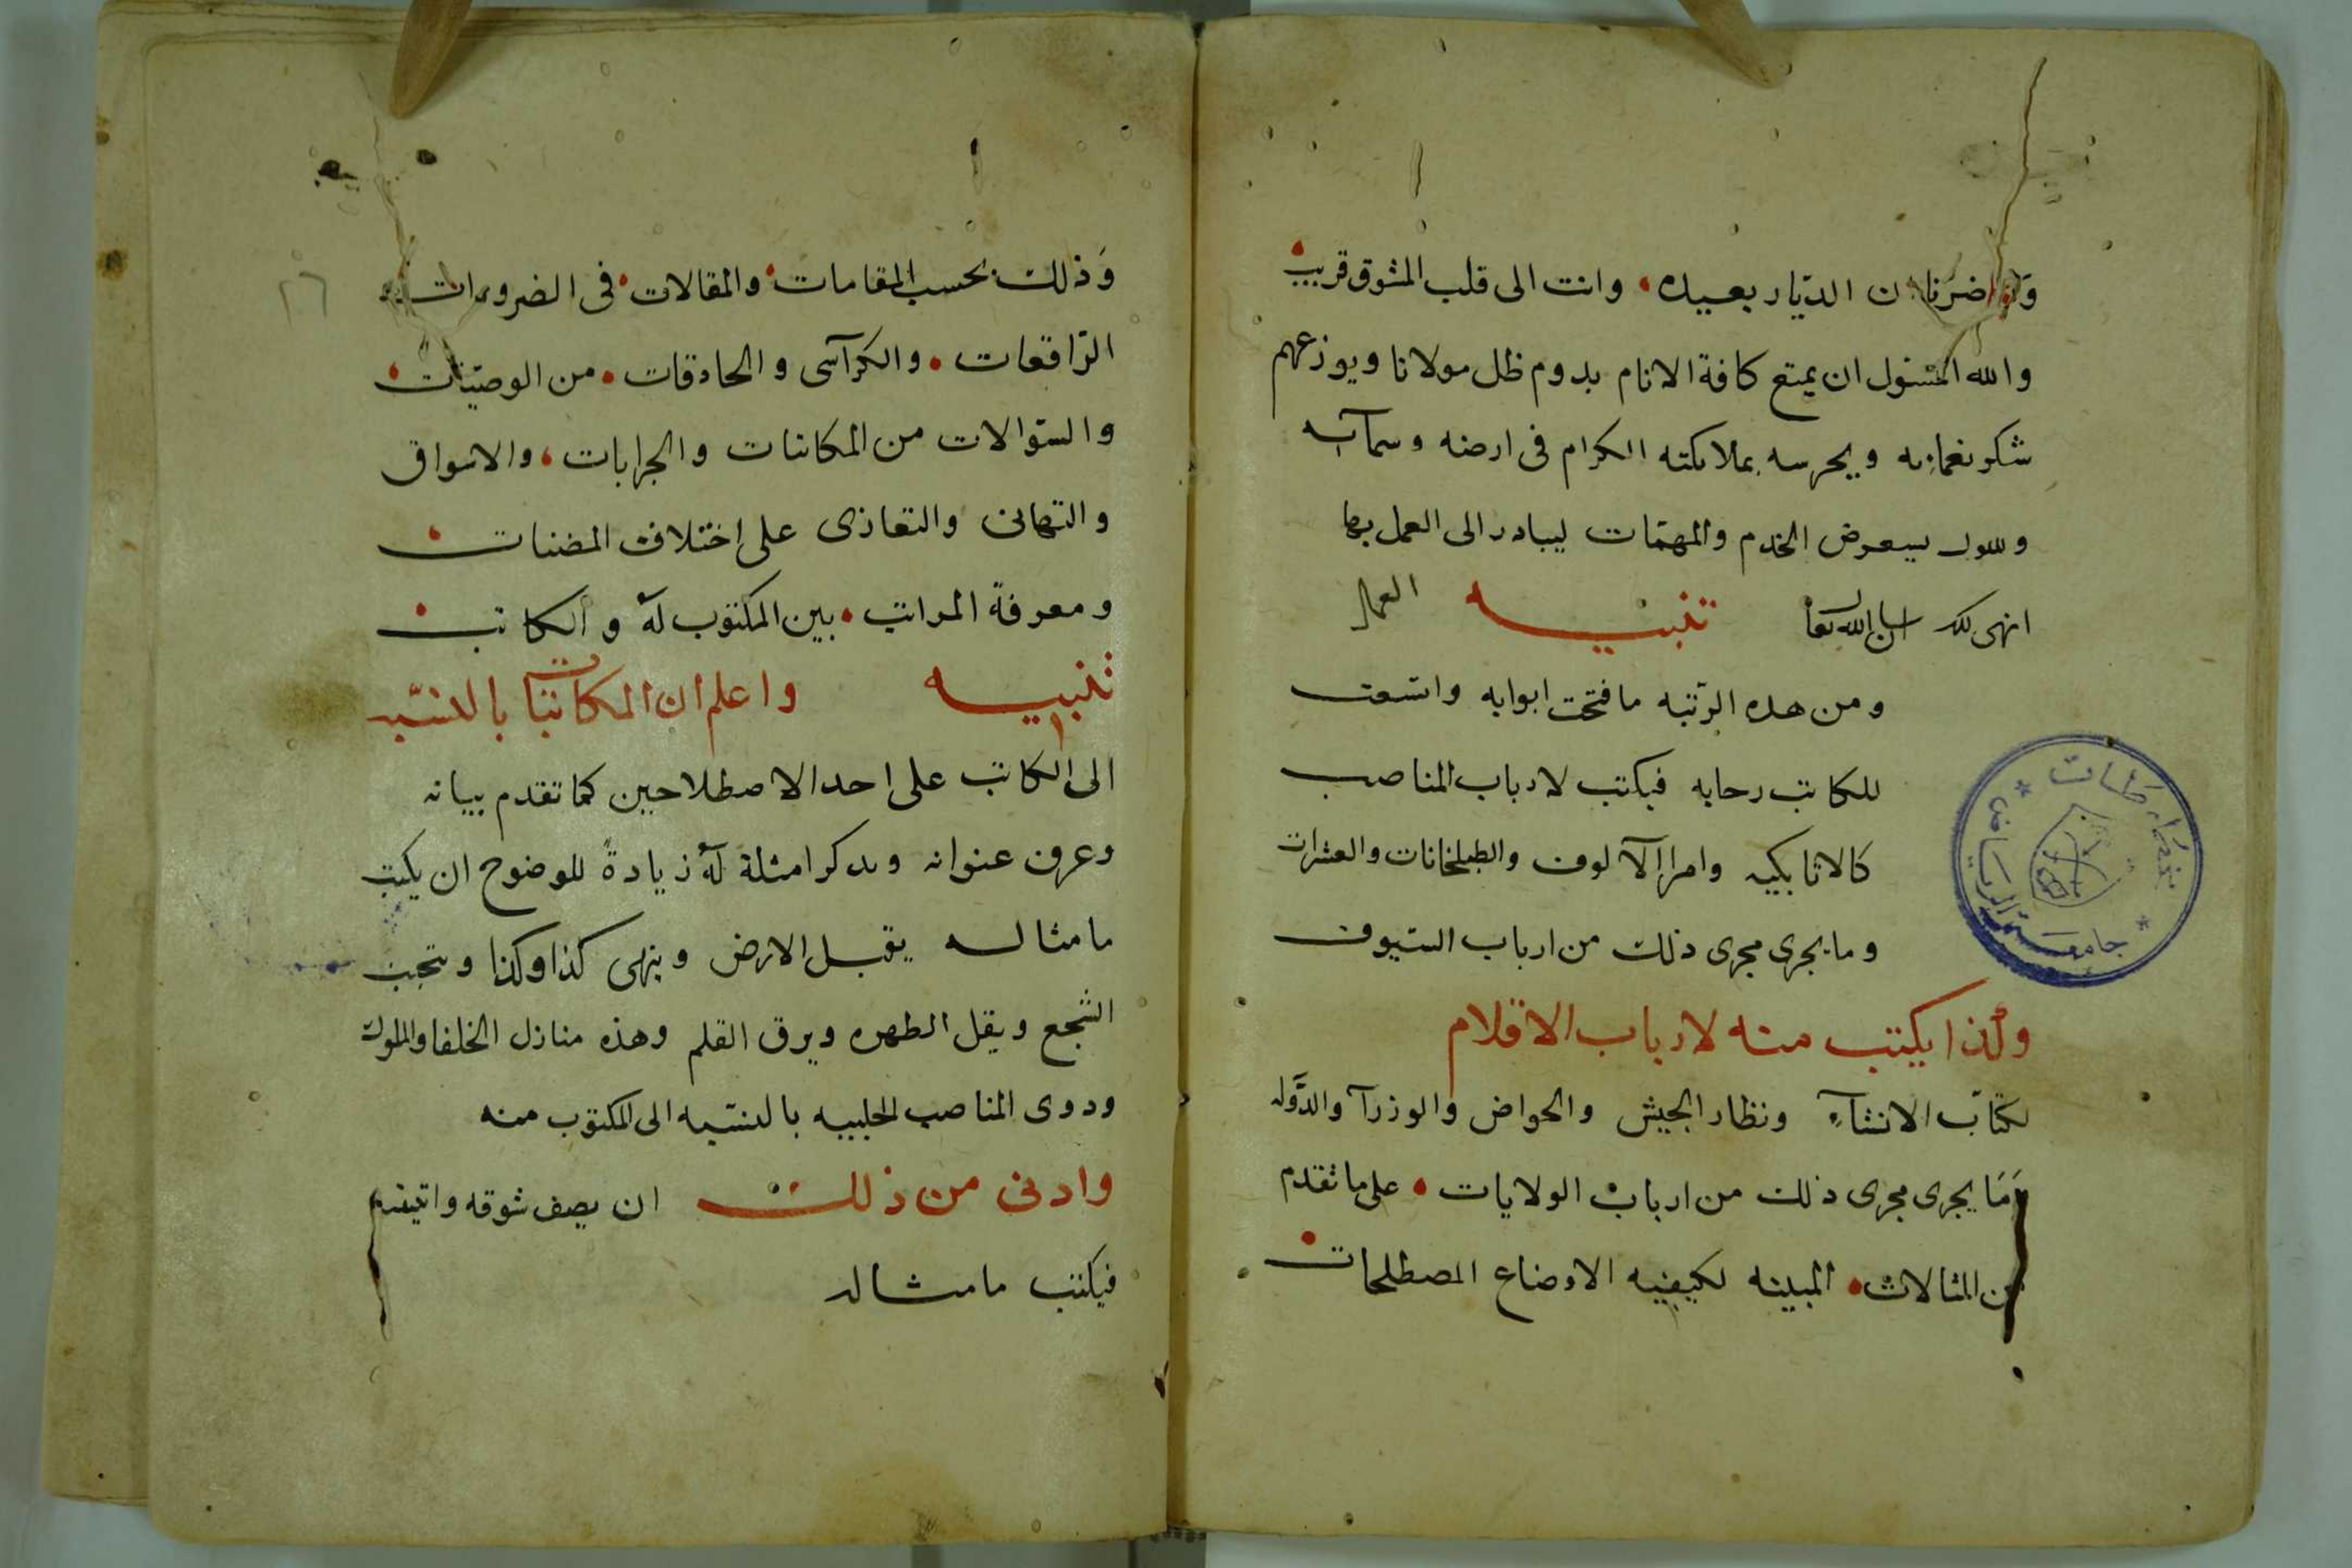 وما ضرنا ان الديار بعيده • وانت الى قلب المشوق قريب
والله المسئول ان يمتع كافة الانام بدوم ظل مولانا ويوزعهم
شكر نعمايه ويحرسه بملائكته الكرام فى ارضه وسمآيه
الخدم والمهمّات ليبادر الى العمل بها
انهى ذلك ان شا الله تعا تنبيه
ومن هذه الرّتبه ما فتحت ابوابه واتسعت
للكاتب رحابه فيكتب لارباب المناصب
كالاتابكيه وامرا الآلوف والطبلخانات والعشرات
وما يجرى مجرى ذلك من ارباب السّيوف
وكذا يكتب منه لارباب الاقلام
لكتّاب الانشآء ونظار الجيش والخواص والوزرآ والدّوله
وَمَا يجرى مجرى ذلك من ارباب الولايات • على ما تقدم
من المثالات • المبينه لكيفيه الاوضاع المصطلحات
مخطوطات
جامعة الرياض
٢٦
وَذلك بحسب المقامات • والمقالات • فى الضرورات
الرّاقعات • والكرآسى والحاذقات • من الوصيّات
والسّوالات من المكاتبات والجرابات • والاشواق
والتهانى والتعازى على اختلاف المضنات
ومعرفة المراتب • بين المكتوب لهُ والكاتب
تنبيه واعلم ان المكاتبات بالنسبه
الى الكاتب على احد الاصطلاحين كما تقدم بيانه
وعرف عنوانه ويذكر امثلة لهُ زيادةً للوضوح ان يكتب
ما مثاله يقبل الارض وينهى كذا وكذا ويتجنب
السّجع ويقل الطهره ويرق القلم وهذه منازل الخلفا والملوك
وذوى المناصب الجليله بالنسبه الى المكتوب منه
وادنى من ذلك ان يصف شوقه
فيكتب ما مثاله